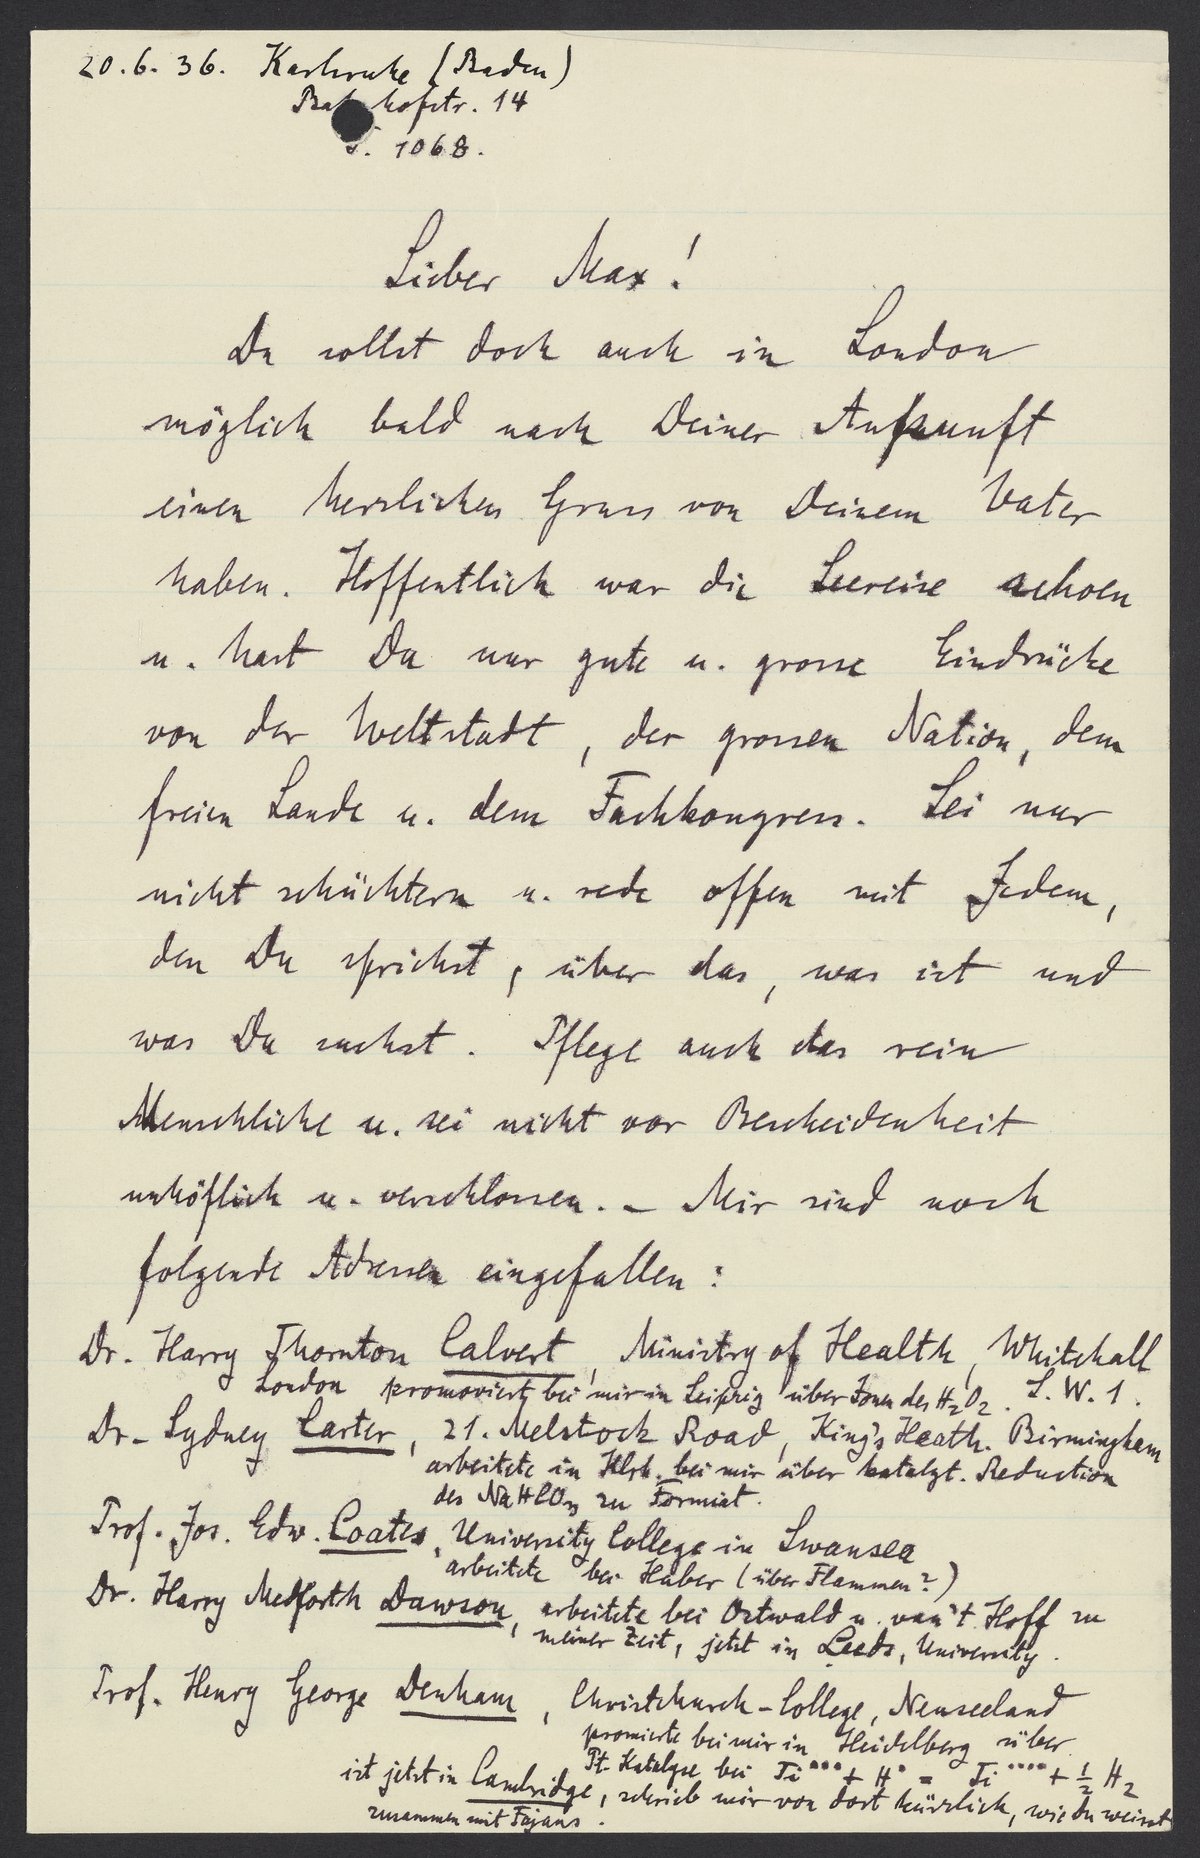 20.6.36. Karlsruhe (Baden)
Bahnhofstr. 14
T. 1068.
Lieber Max!
Du sollst doch auch in London
möglich bald nach Deiner Ankunft
einen herzlichen Gruss von Deinem Vater
haben. Hoffentlich war die Seereise schoen
u. hast Du nur gute u. grosse Eindrücke
von der Weltstadt, der grossen Nation, dem
freien Lande u. dem Fachkongress. Sei nur
nicht schüchtern u. rede offen mit Jedem,
den Du sprichst, über das, was ist und
was Du suchst. Pflege auch das rein
Menschliche u. sei nicht vor Bescheidenheit
unhöflich u. verschlossen. – Mir sind noch
folgende Adressen eingefallen:
Dr. Harry Thornton Calvert, Ministry of Health, Whitehall
London promovierte bei mir in Leipzig über Ionen des H₂O₂. S.W.1.
Dr. Sydney Carter, 21. Melstock Road, King's Heath. Birmingham
arbeitete in Klrh. bei mir über katalyt. Reduction
des NaHCO₃ zu Formiat.
Prof. Jos. Edw. Coates, University College in Swansea
arbeitete bei Haber (über Flammen?)
Dr. Harry Medforth Dawson, arbeitete bei Ostwald u. van't Hoff zu
meiner Zeit, jetzt in Leeds, University.
Prof. Henry George Denham, Christchurch-College, Neuseeland
promierte bei mir in Heidelberg über
Pt-Katalyse bei Ti••• + H• = Ti•••• + ½ H₂
ist jetzt in Cambridge, schrieb mir von dort kürzlich, wie Du weisst
zusammen mit Fajans.